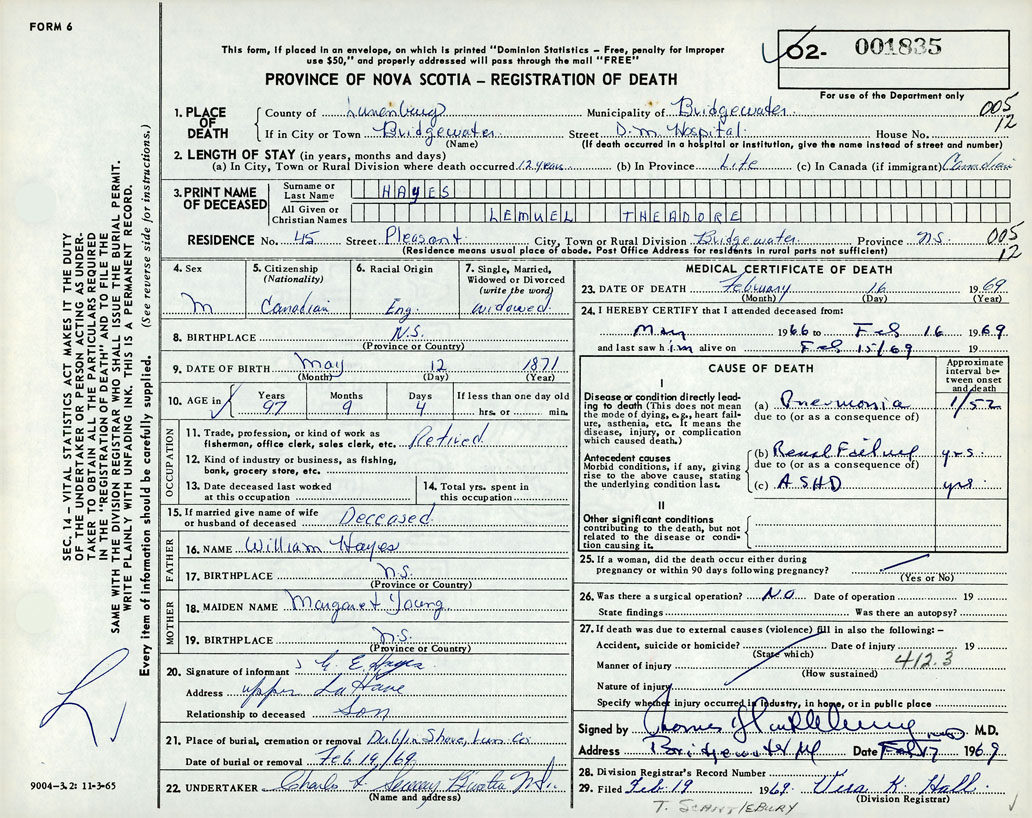 FORM 6
This form, if placed in an envelope, on which is printed "Dominion Statistics – Free, penalty for improper
use $50," and properly addressed will pass through the mail "FREE"
PROVINCE OF NOVA SCOTIA – REGISTRATION OF DEATH
02- 001835
For use of the Department only
005
12
1. PLACE OF DEATH
County of Lunenburg Municipality of Bridgewater
If in City or Town Bridgewater Street D.M. Hospital House No.
(Name) (If death occurred in a hospital or institution, give the name instead of street and number)
2. LENGTH OF STAY (in years, months and days)
(a) In City, Town or Rural Division where death occurred 12 years (b) In Province Life (c) In Canada (if immigrant) Canadian
3. PRINT NAME OF DECEASED
Surname or Last Name HAYES
All Given or Christian Names LEMUEL THEADORE
RESIDENCE No. 45 Street Pleasant City, Town or Rural Division Bridgewater Province N.S. 005
(Residence means usual place of abode. Post Office Address for residents in rural parts not sufficient) 12
4. Sex
M
5. Citizenship
(Nationality)
Canadian
6. Racial Origin
Eng.
7. Single, Married,
Widowed or Divorced
(write the word)
widowed
8. BIRTHPLACE N.S.
(Province or Country)
9. DATE OF BIRTH May 12 1871
(Month) (Day) (Year)
10. AGE in Years Months Days If less than one day old
97 9 4 hrs. or min.
OCCUPATION
11. Trade, profession, or kind of work as
fisherman, office clerk, sales clerk, etc. Retired
12. Kind of industry or business, as fishing,
bank, grocery store, etc.
13. Date deceased last worked
at this occupation
14. Total yrs. spent in
this occupation
15. If married give name of wife
or husband of deceased Deceased
FATHER
16. NAME William Hayes
17. BIRTHPLACE N.S.
(Province or Country)
MOTHER
18. MAIDEN NAME Margaret Young
19. BIRTHPLACE N.S.
(Province or Country)
20. Signature of informant G. E. Hayes
Address Upper LaHave
Relationship to deceased Son
21. Place of burial, cremation or removal Dublin Shore, Lun Co
Date of burial or removal Feb. 19/69
22. UNDERTAKER Charles
(Name and address)
MEDICAL CERTIFICATE OF DEATH
23. DATE OF DEATH February 16 1969
(Month) (Day) (Year)
24. I HEREBY CERTIFY that I attended deceased from:
May 1966 to Feb 16 1969
and last saw him alive on Feb 15/69 19
CAUSE OF DEATH
Approximate interval between onset and death
I
Disease or condition directly leading
to death (This does not mean
the mode of dying, e.g., heart failure,
asthenia, etc. It means the
disease, injury, or complication
which caused death.)
(a) Pneumonia 1/52
due to (or as a consequence of)
Antecedent causes
Morbid conditions, if any, giving
rise to the above cause, stating
the underlying condition last.
(b) Renal Failure yrs.
due to (or as a consequence of)
(c) ASHD yrs
II
Other significant conditions
contributing to the death, but not
related to the disease or condition
causing it.
25. If a woman, did the death occur either during
pregnancy or within 90 days following pregnancy?
(Yes or No)
26. Was there a surgical operation? NO Date of operation 19
State findings Was there an autopsy?
27. If death was due to external causes (violence) fill in also the following: –
Accident, suicide or homicide? Date of injury 19
(State which)
Manner of injury 412.3
(How sustained)
Nature of injury
Specify whether injury occurred in industry, in home, or in public place
Signed by M.D.
Address Bridgewater Date Feb 17 1969
28. Division Registrar's Record Number
29. Filed Feb. 19 1969. Vera K. Hall
(Division Registrar)
SEC. 14 – VITAL STATISTICS ACT MAKES IT THE DUTY
OF THE UNDERTAKER OR PERSON ACTING AS UNDER-
TAKER TO OBTAIN ALL THE PARTICULARS REQUIRED
IN THE "REGISTRATION OF DEATH" AND TO FILE THE
SAME WITH THE DIVISION REGISTRAR WHO SHALL ISSUE THE BURIAL PERMIT.
WRITE PLAINLY WITH UNFADING INK. THIS IS A PERMANENT RECORD.
Every item of information should be carefully supplied. (See reverse side for instructions.)
9004–3.2: 11-3-65